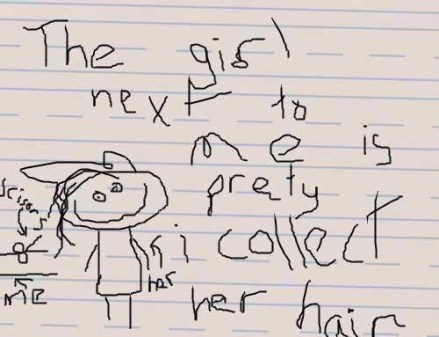 The girl
next to
me is
prety
i collect
her hair
scissors
her
ME